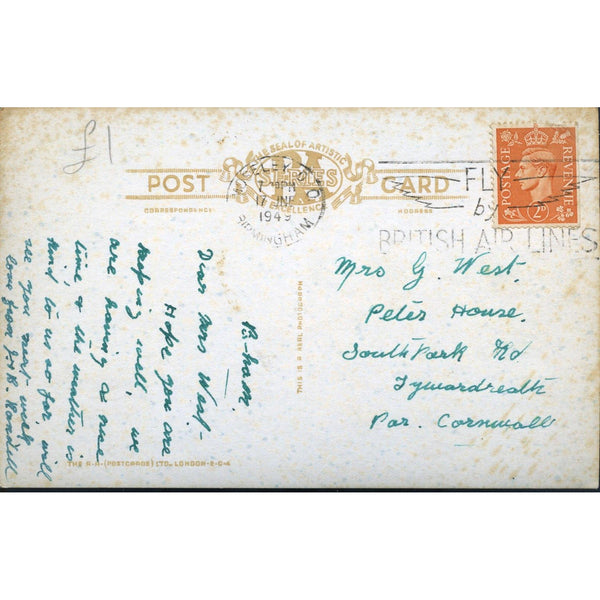 £1
THE SEAL OF ARTISTIC
RA
SERIES
EXCELLENCE
POST CARD
CORRESPONDENCE
ADDRESS
17 JNE
1949
BIRMINGHAM
FLY
by
BRITISH AIR LINES
POSTAGE
REVENUE
2D
THIS IS A REAL PHOTOGRAPH
B-ham.
Dear Mrs West-
Hope you are
keeping well, we
are having a nice
time, & the weather is
kind to us so far, will
see you next week
love from J & B Randell
Mrs G. West.
Peter House.
South Park Rd
Tywardreath
Par. Cornwall
THE R.A. (POSTCARDS) LTD., LONDON-E-C-4